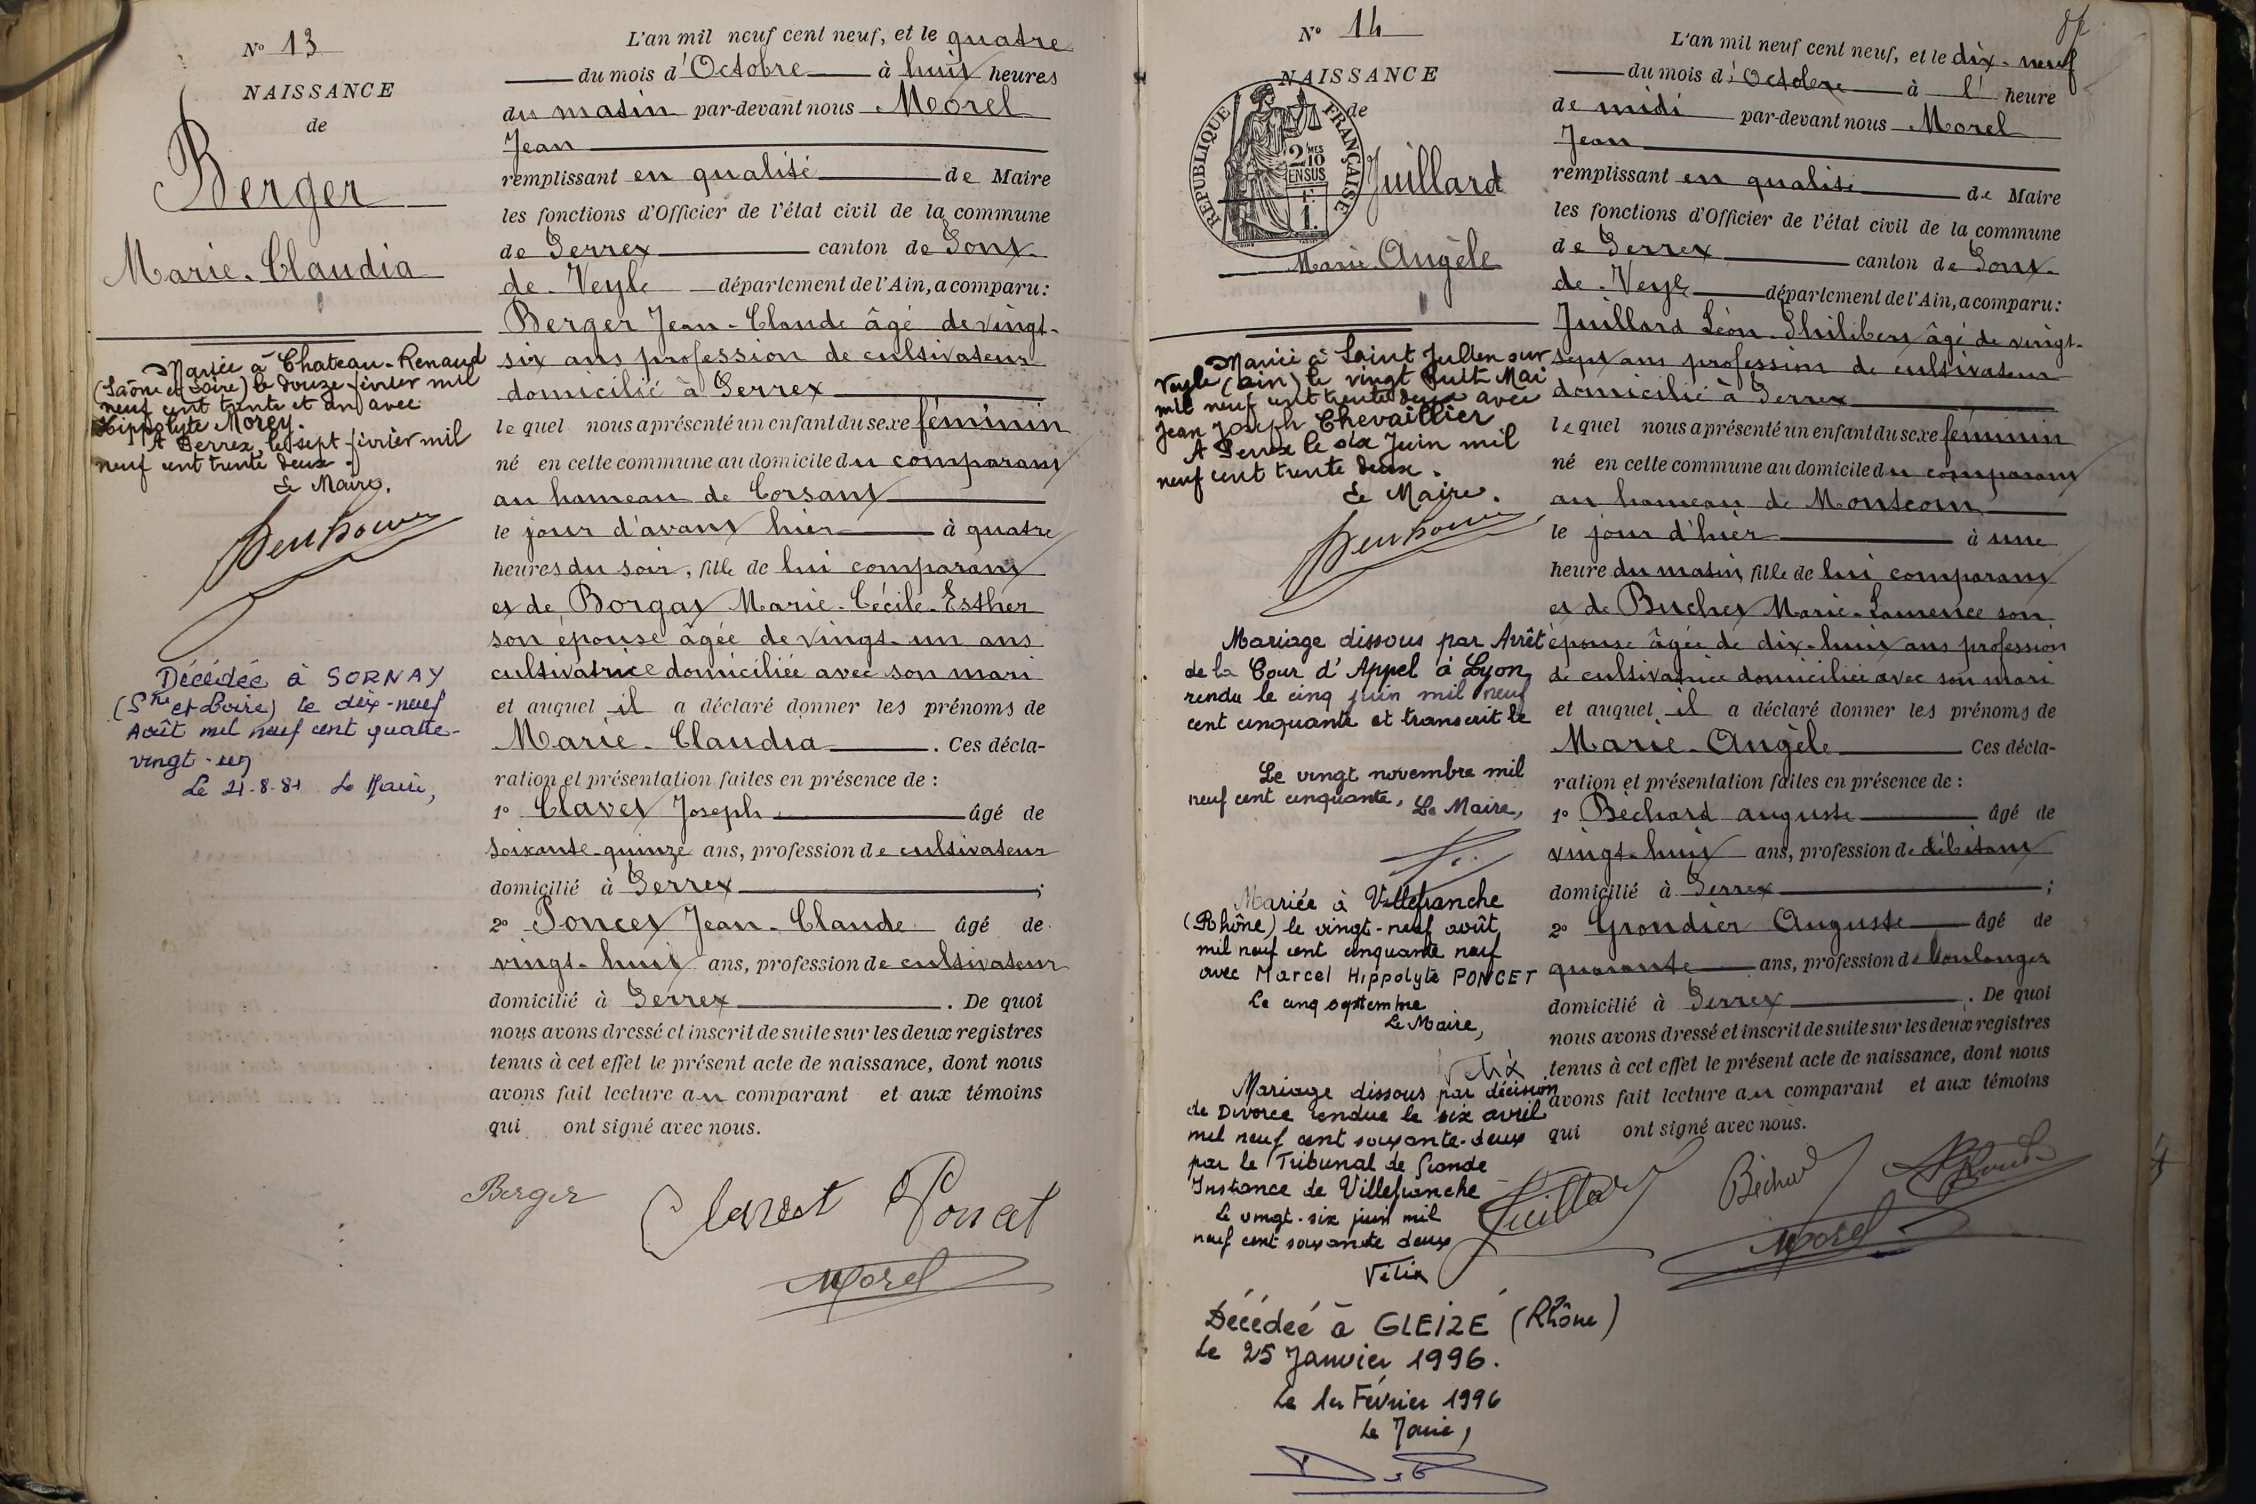 N° 13
NAISSANCE
de
Berger
Marie-Claudia
Mariée à Chateau-Renaud
(Saône et Loire) le douze février mil
neuf cent trente et un avec
Hippolyte Morey.
A Perrex, le sept février mil
neuf cent trente deux.
Le Maire.
Décédée à SORNAY
(Sne et Loire) le dix-neuf
Août mil neuf cent quatre-
vingt-un
Le 21-8-81 Le Maire,
L'an mil neuf cent neuf, et le quatre
du mois d'Octobre à huit heures
du matin par-devant nous Morel
Jean
remplissant en qualité de Maire
les fonctions d'Officier de l'état civil de la commune
de Perrex canton de Pont-
de-Veyle département de l'Ain, a comparu:
Berger Jean-Claude âgé de vingt-
six ans profession de cultivateur
domicilié à Perrex
lequel nous a présenté un enfant du sexe féminin
né en cette commune au domicile du comparant
au hameau de Corsant
le jour d'avant hier à quatre
heures du soir, fille de lui comparant
et de Borgat Marie-Cécile-Esther
son épouse âgée de vingt-un ans
cultivatrice domiciliée avec son mari
et auquel il a déclaré donner les prénoms de
Marie-Claudia. Ces décla-
ration et présentation faites en présence de :
1° Clavet Joseph âgé de
soixante-quinze ans, profession de cultivateur
domicilié à Perrex ;
2° Poncet Jean-Claude âgé de
vingt-huit ans, profession de cultivateur
domicilié à Perrex. De quoi
nous avons dressé et inscrit de suite sur les deux registres
tenus à cet effet le présent acte de naissance, dont nous
avons fait lecture au comparant et aux témoins
qui ont signé avec nous.
Berger Clavet Poncet
Morel
N° 14
NAISSANCE
de
RÉPUBLIQUE FRANÇAISE
2 MES 10
EN SUS
Juillard
Marie-Angèle
Mariée à Saint Julien sur
Veyle (Ain) le vingt huit Mai
mil neuf cent trente deux avec
Jean Joseph Chevaillier
A Perrex le six Juin mil
neuf cent trente deux.
Le Maire.
Mariage dissous par Arrêt
de la Cour d'Appel à Lyon
rendu le cinq juin mil neuf
cent cinquante et transcrit le
Le vingt novembre mil
neuf cent cinquante, Le Maire,
Mariée à Villefranche
(Rhône) le vingt-neuf août
mil neuf cent cinquante neuf
avec Marcel Hippolyte PONCET
Le cinq septembre
Le Maire,
Vélix
Mariage dissous par décision
de Divorce rendue le six avril
mil neuf cent soixante-deux
par le Tribunal de Grande
Instance de Villefranche
Le vingt-six juin mil
neuf cent soixante deux
Vélix
Décédée à GLEIZÉ (Rhône)
Le 25 Janvier 1996.
Le 1er Février 1996
Le Maire,
L'an mil neuf cent neuf, et le dix-neuf
du mois d'Octobre à l' heure
de midi par-devant nous Morel
Jean
remplissant en qualité de Maire
les fonctions d'Officier de l'état civil de la commune
de Perrex canton de Pont-
de-Veyle département de l'Ain, a comparu:
Juillard Léon-Philibert âgé de vingt-
sept ans profession de cultivateur
domicilié à Perrex
lequel nous a présenté un enfant du sexe féminin
né en cette commune au domicile du comparant
au hameau de Montcorin
le jour d'hier à une
heure du matin, fille de lui comparant
et de Buchet Marie-Laurence son
épouse âgée de dix-huit ans profession
de cultivatrice domiciliée avec son mari
et auquel il a déclaré donner les prénoms de
Marie-Angèle Ces décla-
ration et présentation faites en présence de :
1° Béchard Auguste âgé de
vingt-huit ans, profession de débitant
domicilié à Perrex ;
2° Grondier Auguste âgé de
quarante ans, profession de boulanger
domicilié à Perrex. De quoi
nous avons dressé et inscrit de suite sur les deux registres
tenus à cet effet le présent acte de naissance, dont nous
avons fait lecture au comparant et aux témoins
qui ont signé avec nous.
Juillard Béchard
Morel